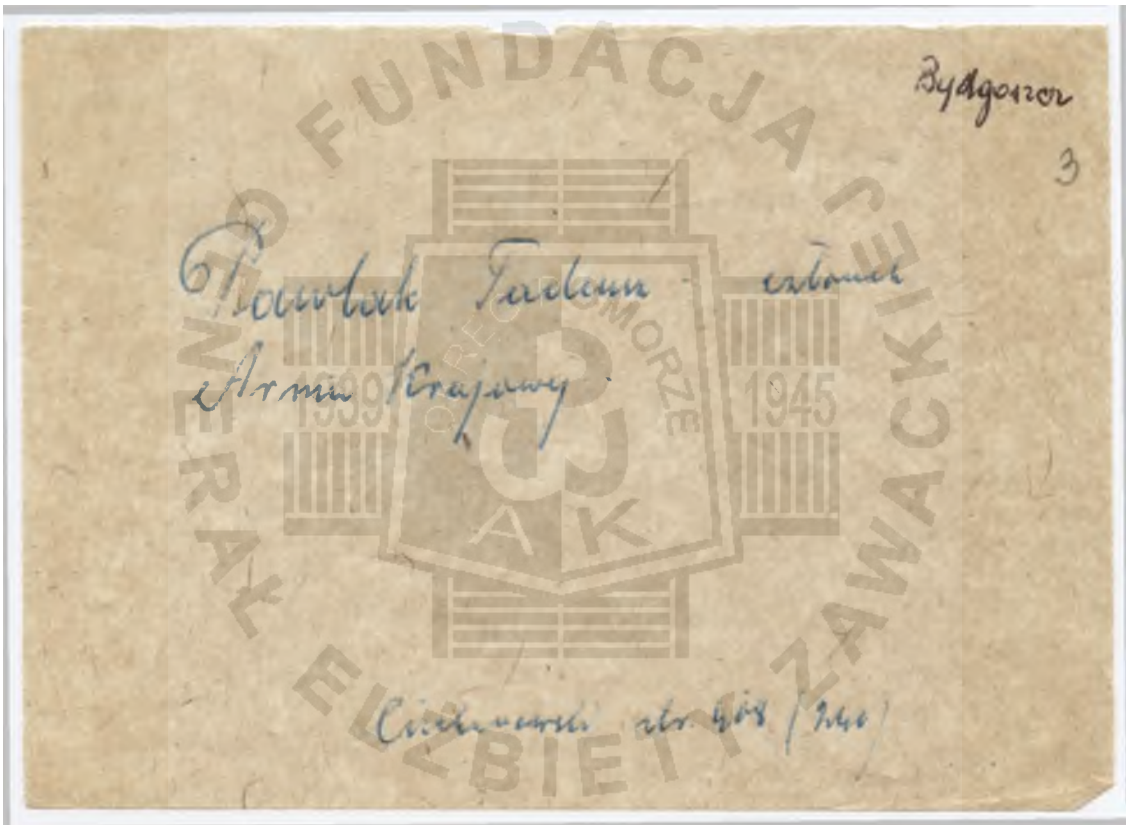 Bydgoszcz
3
Pawlak Tadeusz - członek
Armii Krajowej.
str. 408 (240)
FUNDACJA GENERAŁ ELŻBIETY ZAWACKIEJ
OKRĘG POMORZE
1939 1945
AK